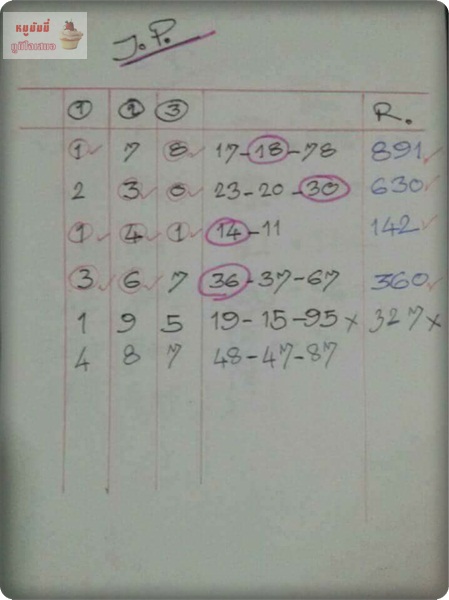 หมูมัมมี่
ภูมิใจเสนอ
J.P.
① ② ③ R.
1 7 8 17-18-78 891
2 3 0 23-20-30 630
1 4 1 14-11 142
3 6 7 36-37-67 360
1 9 5 19-15-95 x 327 x
4 8 7 48-47-87